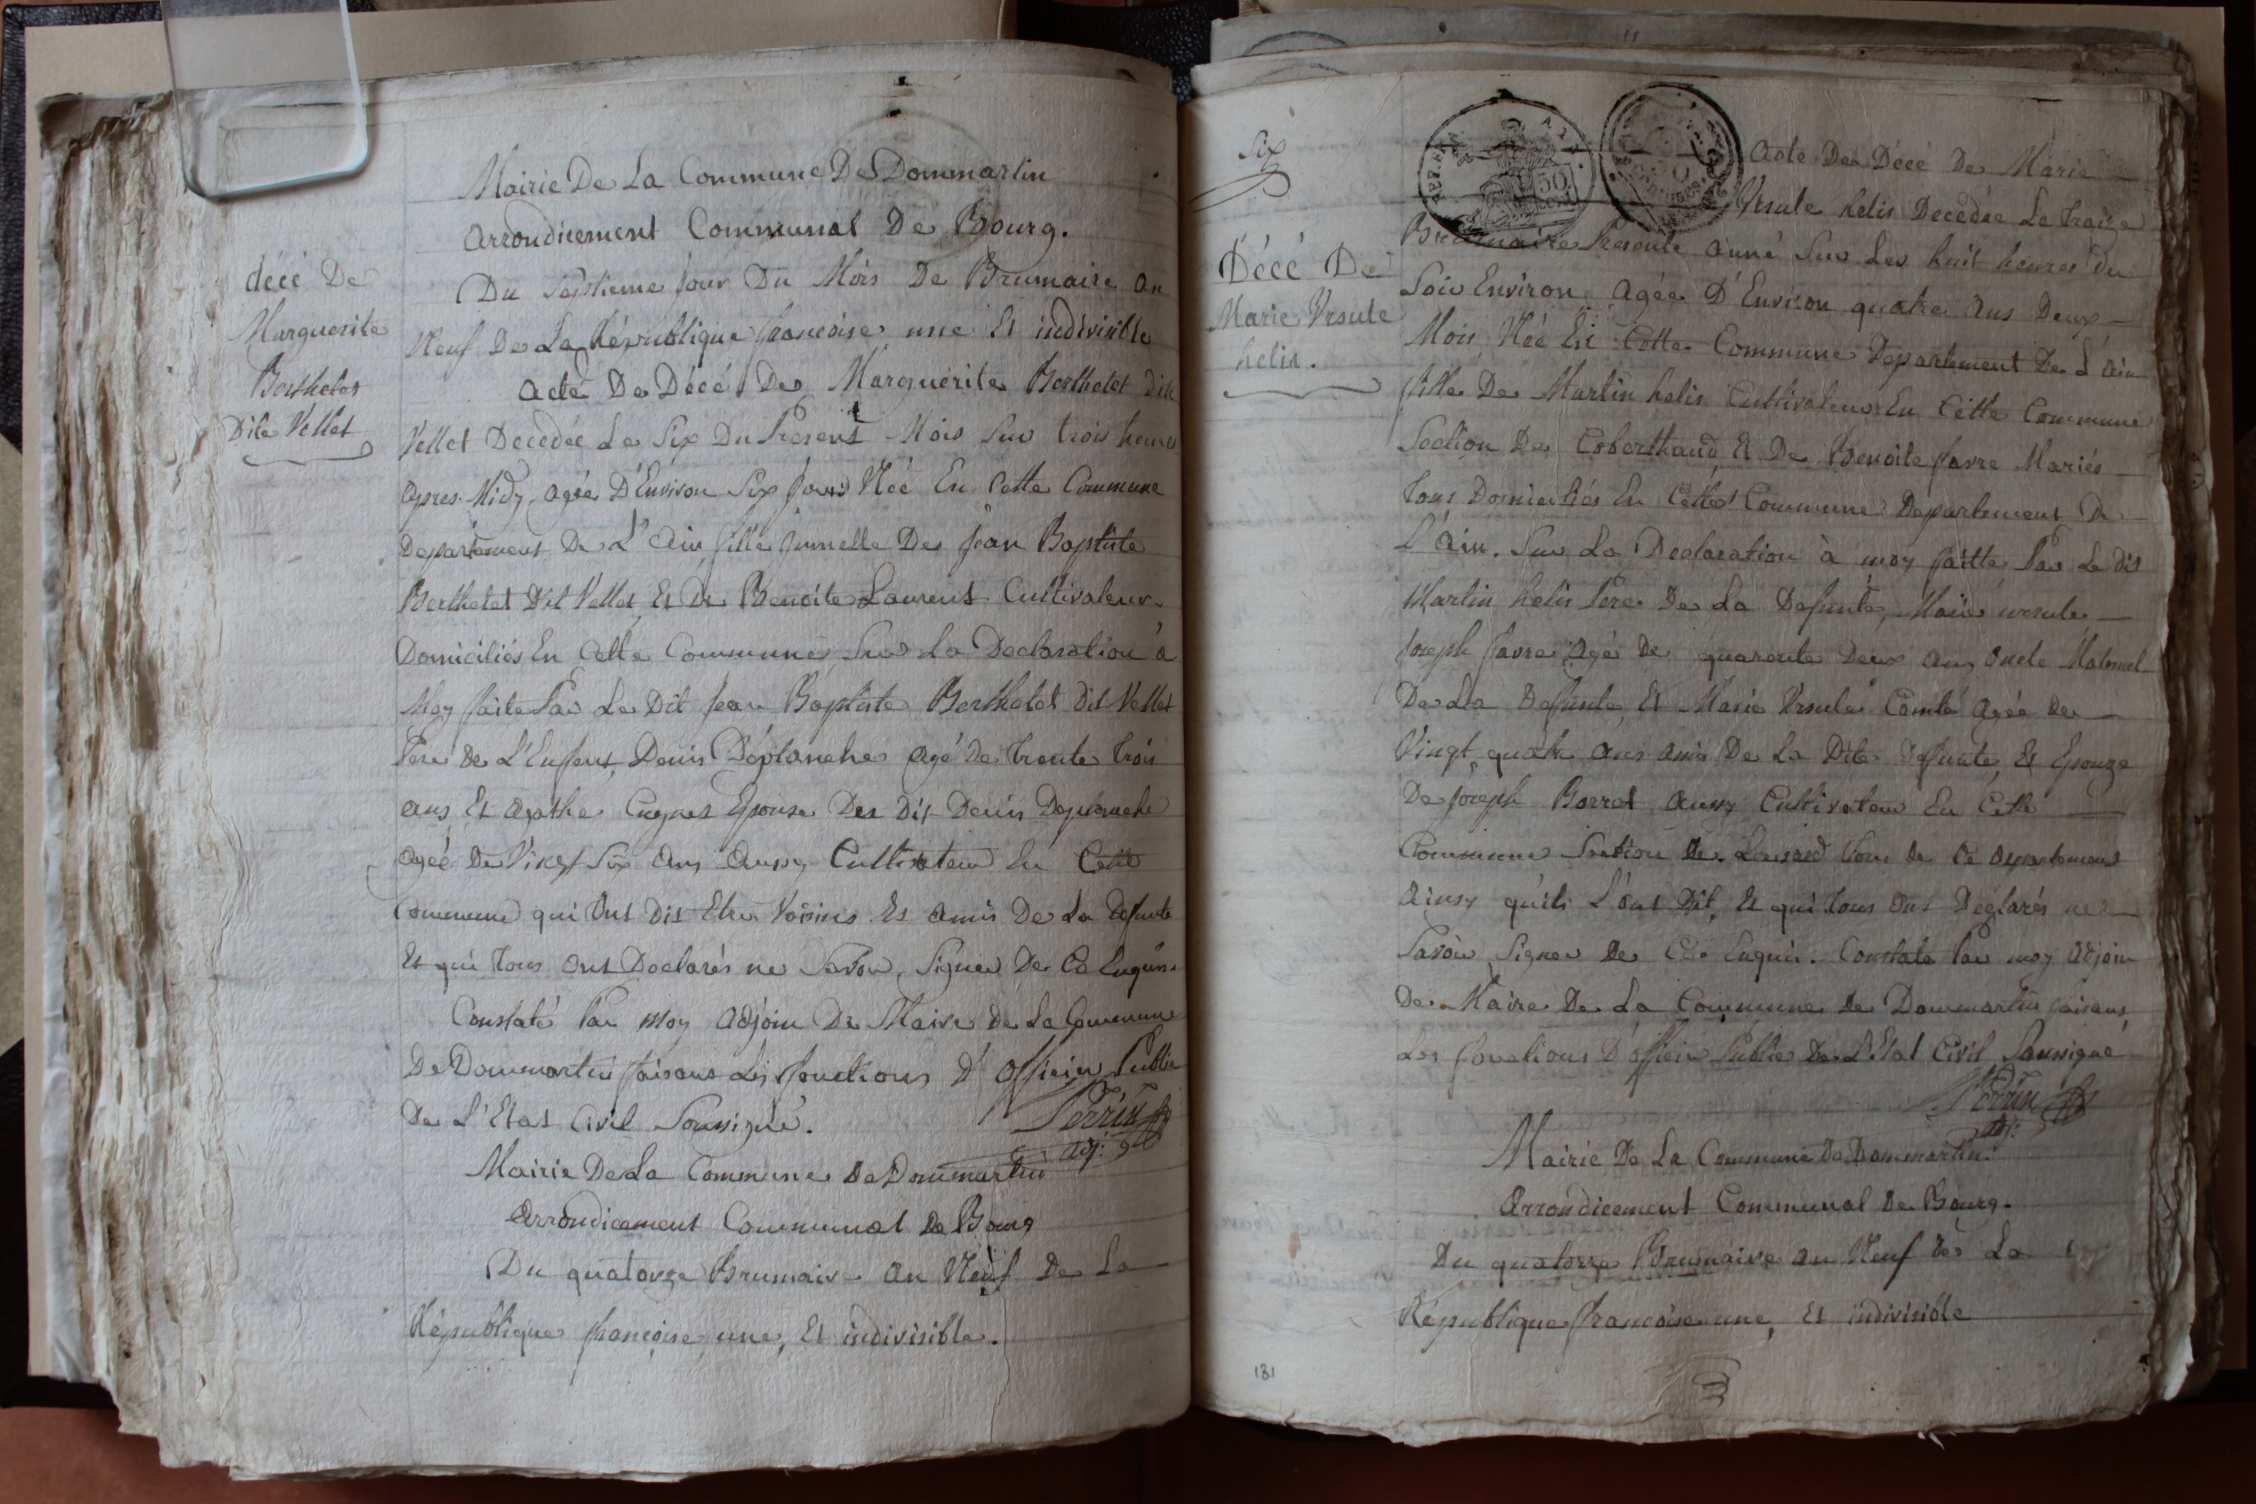 Mairie De La Commune De Dommartin
arrondicement Communal De Bourg.
décé De
Marguerite
Berthelet
Dite Vellet
Du Septieme jour Du Mois De Brumaire an
Neuf De La République françoise une Et indivisible
acte De Décé De Marguerite Berthelet dite
Vellet Decedée Le Six Du Present Mois Sur trois heures
apres Midy, agée D'Environ Six jours Née En Cette Commune
Departement De L'ain fille jumelle De jean Baptiste
Berthelet Dit Vellet Et De Benoite Laurent Cultivateur
Domiciliés En Cette Commune, Sur La Declaration à
Moy faite Par Le Dit jean Baptiste Berthelet Dit Vellet
Pere De L'Enfent, Denis Déplanche agé De trente trois
ans Et agathe Epouse Du Dit Denis Deplanche
agée De Vingt Six ans aussy Cultivateur En Cette
Commune qui Ont Dit Etre Voisins Et amis De La Defunte
Et qui tous Ont Declarés ne Savoir Signer De Ce Enquis
Constaté Par moy adjoin De Maire De La Commune
De Dommartin faisans Les fonctions D'officier Public
De L'Etat Civil Soussigné.
Perrin
adj.
Mairie De La Commune De Dommartin
arrondicement Communal De Bourg
Du quatorze Brumaire an Neuf De La
République françoise une, Et indivisible.
Six
Décé De
Marie Ursule
helis.
acte De Décé De Marie
Ursule helis Decedée Le traize
Brumaire Presente anné Sur Les huit heures du
Soir Environ, agée D'Environ quatre ans Deux
Mois Née En Cette Commune Departement De L'ain
fille De Martin helis Cultivateur En Cette Commune
Section De Coberthaud Et De Benoite favre Mariés
tous Domiciliés En Cette Commune Departement De
L'ain. Sur La Declaration à moy faitte Par Le dit
Martin helis Pere De La Defunte, Marie ursule
joseph favre agé De quarante Deux ans Oncle Maternel
De La Defunte, Et Marie Ursule Comte agée De
Vingt quatre ans amis De La Dite Defunte, Et Epouze
De joseph Borret aussy Cultivateur En Cette
Commune Section De tous De Ce departement
ainsy qu'ils L'ont Dit, Et qui tous Ont Déclarés ne
Savoir Signer De Ce Enquis. Constaté Par moy adjoin
De Maire De La Commune De Dommartin faisans
Les fonctions D'officier Public De L'Etat Civil Soussigné
Perrin
adj.
Mairie De La Commune De Dommartin.
arrondicement Communal De Bourg.
Du quatorze Brumaire an Neuf De La
République françoise une, Et indivisible
181